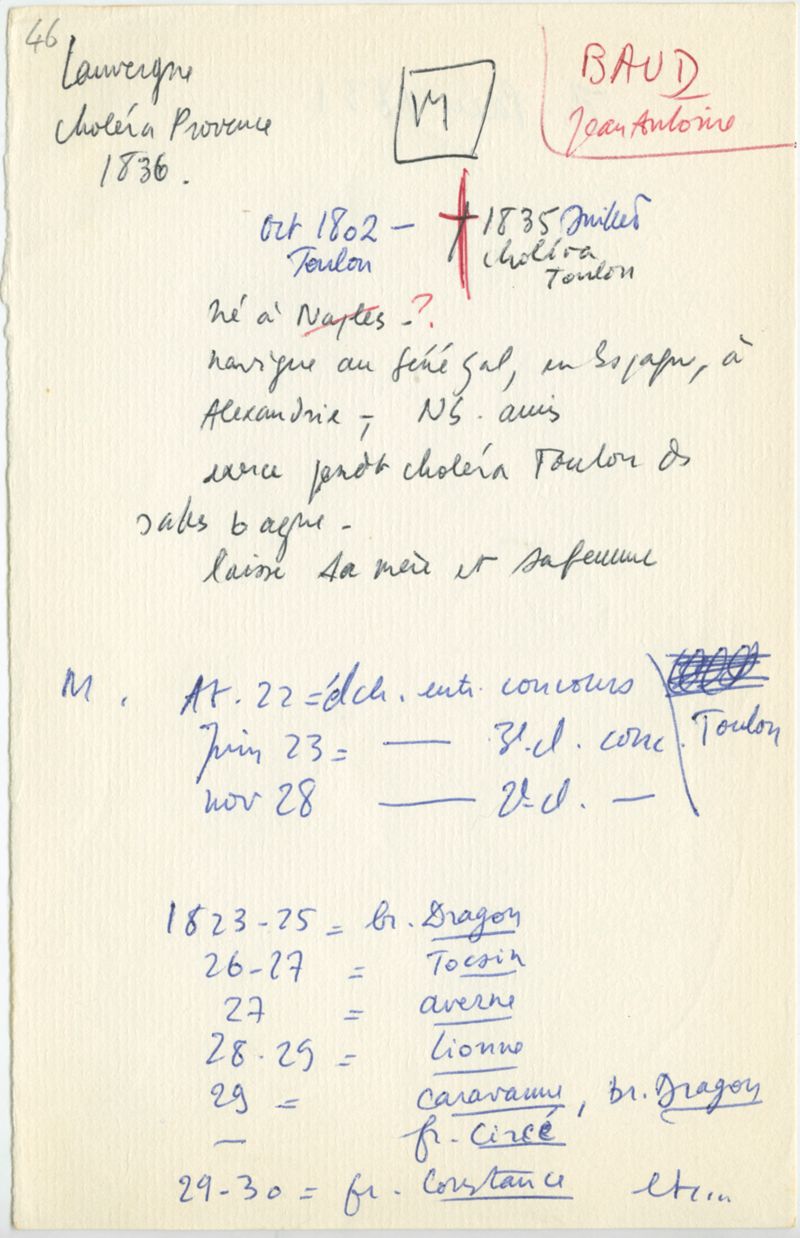 46
Lauvergne
choléra Provence
1836.
M
BAUD
Jean Antoine
oct 1802 –
Toulon
† 1835 Juillet
choléra
Toulon
né à Naples - ?
navigue au Sénégal, en Espagne, à
Alexandrie -, NB. amis
exerce pendt choléra Toulon ds
salles bagne -
laisse sa mère et sa femme
M. At. 22 = é ch. entr. concours
Toulon
Juin 23 = — 3e cl. conc.
nov 28 — 2e cl. —
1823-25 = br. Dragon
26-27 = Tocsin
27 = averne
28-29 = Lionne
29 = caravanne, br. Dragon
— fr. Circé
29-30 = fr. Constance etc...